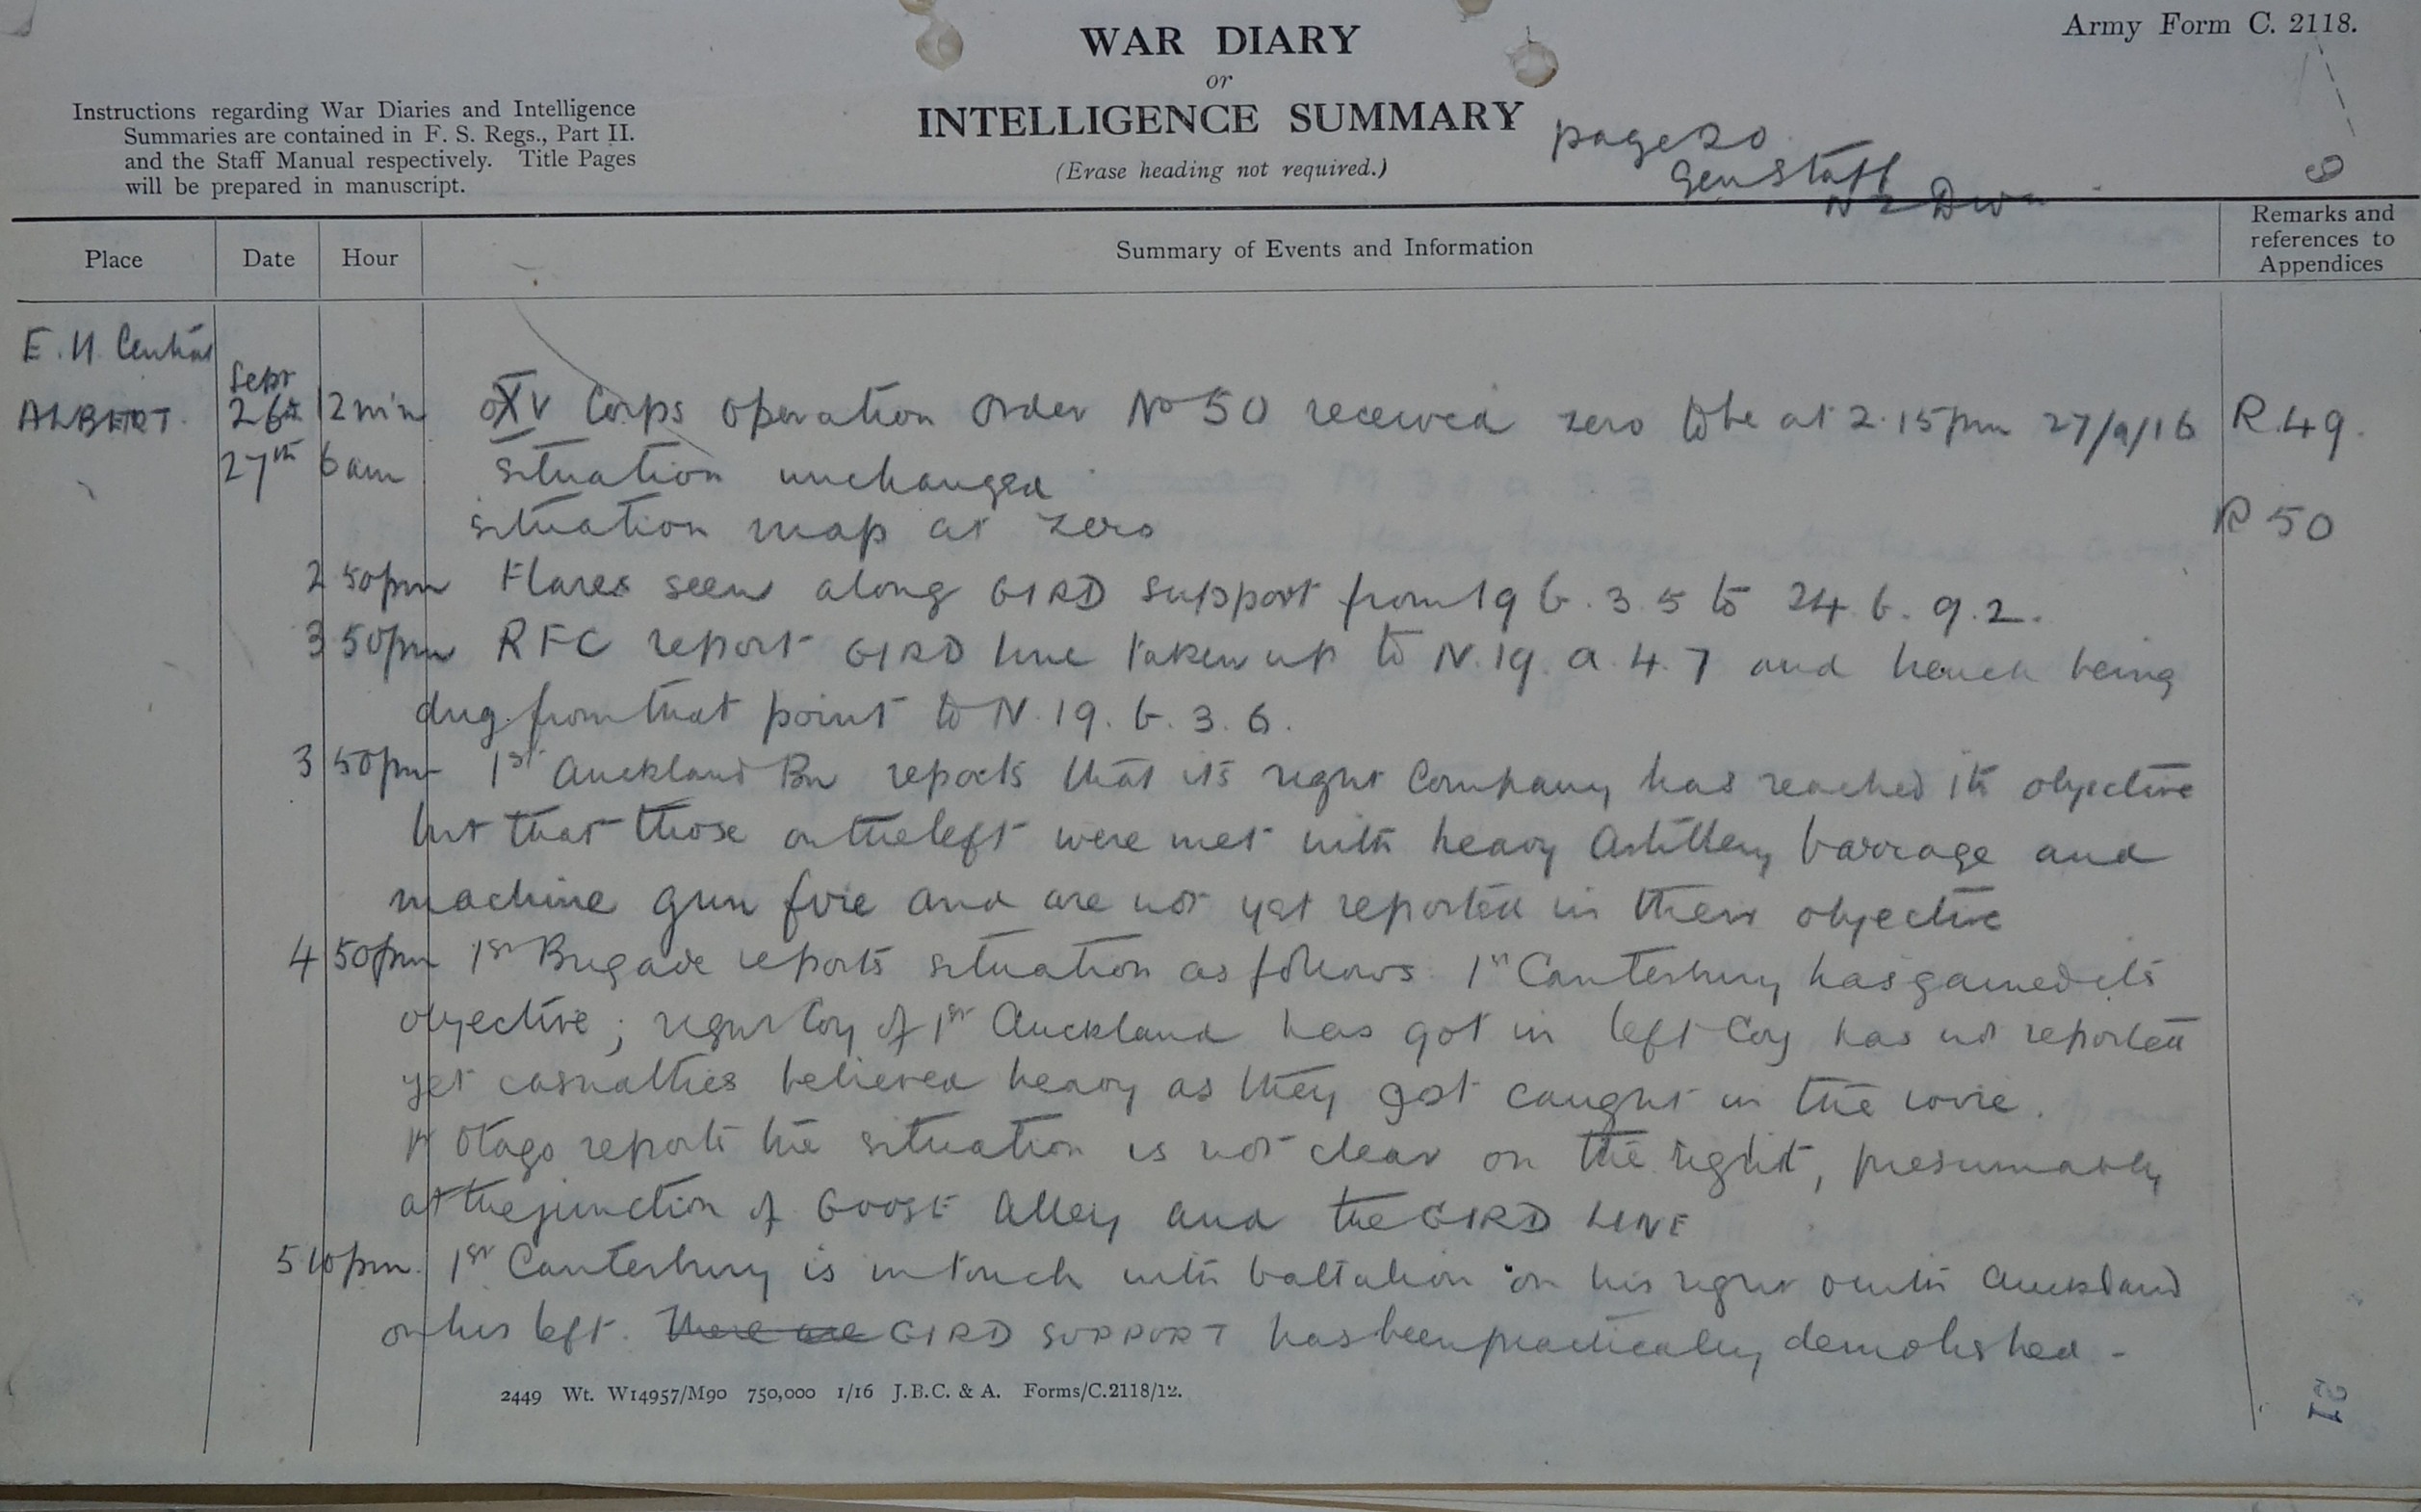 Army Form C. 2118.
WAR DIARY
or
INTELLIGENCE SUMMARY
(Erase heading not required.)
Instructions regarding War Diaries and Intelligence
Summaries are contained in F. S. Regs., Part II.
and the Staff Manual respectively. Title Pages
will be prepared in manuscript.
page 20
Gen Staff
N Z Divn
Place Date Hour Summary of Events and Information Remarks and references to Appendices
E. 11. Central
Sept
ALBERT. 26th 12 mn XV Corps Operation Order No 50 received zero to be at 2.15pm 27/9/16 R.49.
27th 6 am situation unchanged
situation map at zero R 50
2 50pm Flares seen along GIRD support from 19 b. 3. 5 to 24. b. 9. 2.
3 50pm RFC report GIRD line taken up to N. 19. a. 4. 7 and trench being
dug from that point to N. 19. b. 3. 6.
3 50pm 1st Auckland Bn reports that its right Company has reached its objective
but that those on the left were met with heavy Artillery barrage and
machine gun fire and are not yet reported in their objective
4 50pm 1st Brigade reports situation as follows. 1st Canterbury has gained its
objective; right Coy of 1st Auckland has got in left Coy has not reported
yet casualties believed heavy as they got caught in the wire.
1st Otago reports the situation is not clear on the right, presumably
at the junction of GOOSE Alley and the GIRD LINE
5 10pm. 1st Canterbury is in touch with battalion on his right & with Auckland
on his left. There are GIRD SUPPORT has been practically demolished -
2449 Wt. W14957/M90 750,000 1/16 J.B.C. & A. Forms/C.2118/12.
21